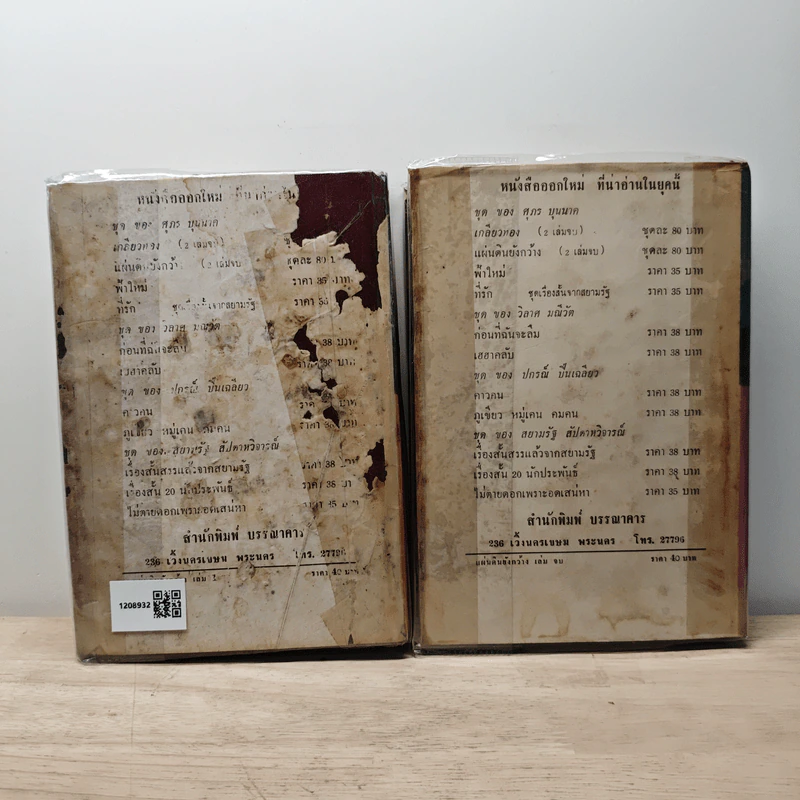 หนังสือออกใหม่
ชุด ของ สุภร บุนนาค
เกลียวทอง (2 เล่มจบ)
แผ่นดินยังกว้าง (2 เล่มจบ ชุดละ 80
ฟ้าใหม่ ราคา 35 บาท
ที่รัก ชุดเรื่องสั้นจากสยามรัฐ
ชุด ของ วิลาศ มณีวัต
ก่อนที่ฉันจะลืม 38 บาท
เฮฮาคลับ 38 บาท
ชุด ของ ปกรณ์ ปิ่นเฉลียว
คาวคน
ภูเขียว หมู่เคน คมคน
ชุด ของ สยามรัฐ สัปดาหวิจารณ์
เรื่องสั้นสรรแล้วจากสยามรัฐ ราคา 38
เรื่องสั้น 20 นักประพันธ์ ราคา 38
ไม่ตายดอกเพราะอดเสน่หา
สำนักพิมพ์ บรรณาคาร
236 เวิ้งนครเขษม พระนคร โทร. 27796
เล่ม 1 ราคา 40 บาท
1208932
หนังสือออกใหม่ ที่น่าอ่านในยุคนี้
ชุด ของ สุภร บุนนาค
เกลียวทอง (2 เล่มจบ) ชุดละ 80 บาท
แผ่นดินยังกว้าง (2 เล่มจบ) ชุดละ 80 บาท
ฟ้าใหม่ ราคา 35 บาท
ที่รัก ชุดเรื่องสั้นจากสยามรัฐ ราคา 35 บาท
ชุด ของ วิลาศ มณีวัต
ก่อนที่ฉันจะลืม ราคา 38 บาท
เฮฮาคลับ ราคา 38 บาท
ชุด ของ ปกรณ์ ปิ่นเฉลียว
คาวคน ราคา 38 บาท
ภูเขียว หมู่เคน คมคน ราคา 38 บาท
ชุด ของ สยามรัฐ สัปดาหวิจารณ์
เรื่องสั้นสรรแล้วจากสยามรัฐ ราคา 38 บาท
เรื่องสั้น 20 นักประพันธ์ ราคา 38 บาท
ไม่ตายดอกเพราะอดเสน่หา ราคา 35 บาท
สำนักพิมพ์ บรรณาคาร
236 เวิ้งนครเขษม พระนคร โทร. 27796
แผ่นดินยังกว้าง เล่ม จบ ราคา 40 บาท